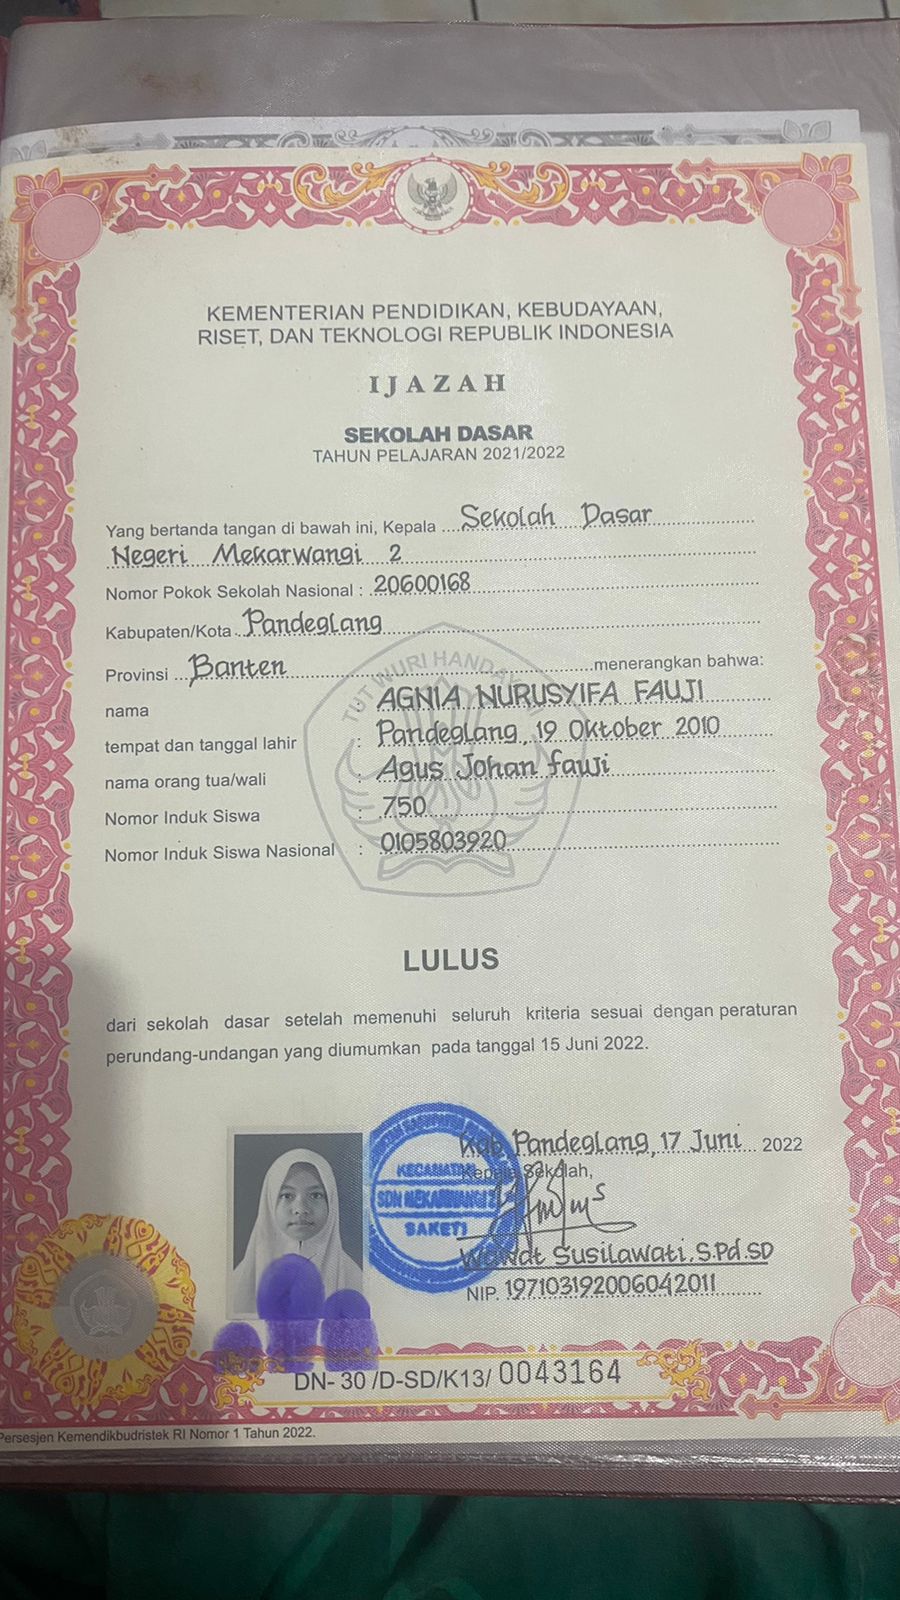 KEMENTERIAN PENDIDIKAN, KEBUDAYAAN,
RISET, DAN TEKNOLOGI REPUBLIK INDONESIA
IJAZAH
SEKOLAH DASAR
TAHUN PELAJARAN 2021/2022
Yang bertanda tangan di bawah ini, Kepala Sekolah Dasar
Negeri Mekarwangi 2
Nomor Pokok Sekolah Nasional : 20600168
Kabupaten/Kota Pandeglang
Provinsi Banten menerangkan bahwa:
TUT WURI HANDAYANI
nama : AGNIA NURUSYIFA FAUJI
tempat dan tanggal lahir : Pandeglang, 19 Oktober 2010
nama orang tua/wali : Agus Johan fauji
Nomor Induk Siswa : 750
Nomor Induk Siswa Nasional : 0105803920
LULUS
dari sekolah dasar setelah memenuhi seluruh kriteria sesuai dengan peraturan
perundang-undangan yang diumumkan pada tanggal 15 Juni 2022.
Kab. Pandeglang, 17 Juni 2022
Kepala Sekolah,
KECAMATAN
SDN MEKARWANGI 2
SAKETI
Wawat Susilawati, S.Pd.SD
NIP. 197103192006042011
DN- 30 /D-SD/K13/ 0043164
Persesjen Kemendikbudristek RI Nomor 1 Tahun 2022.